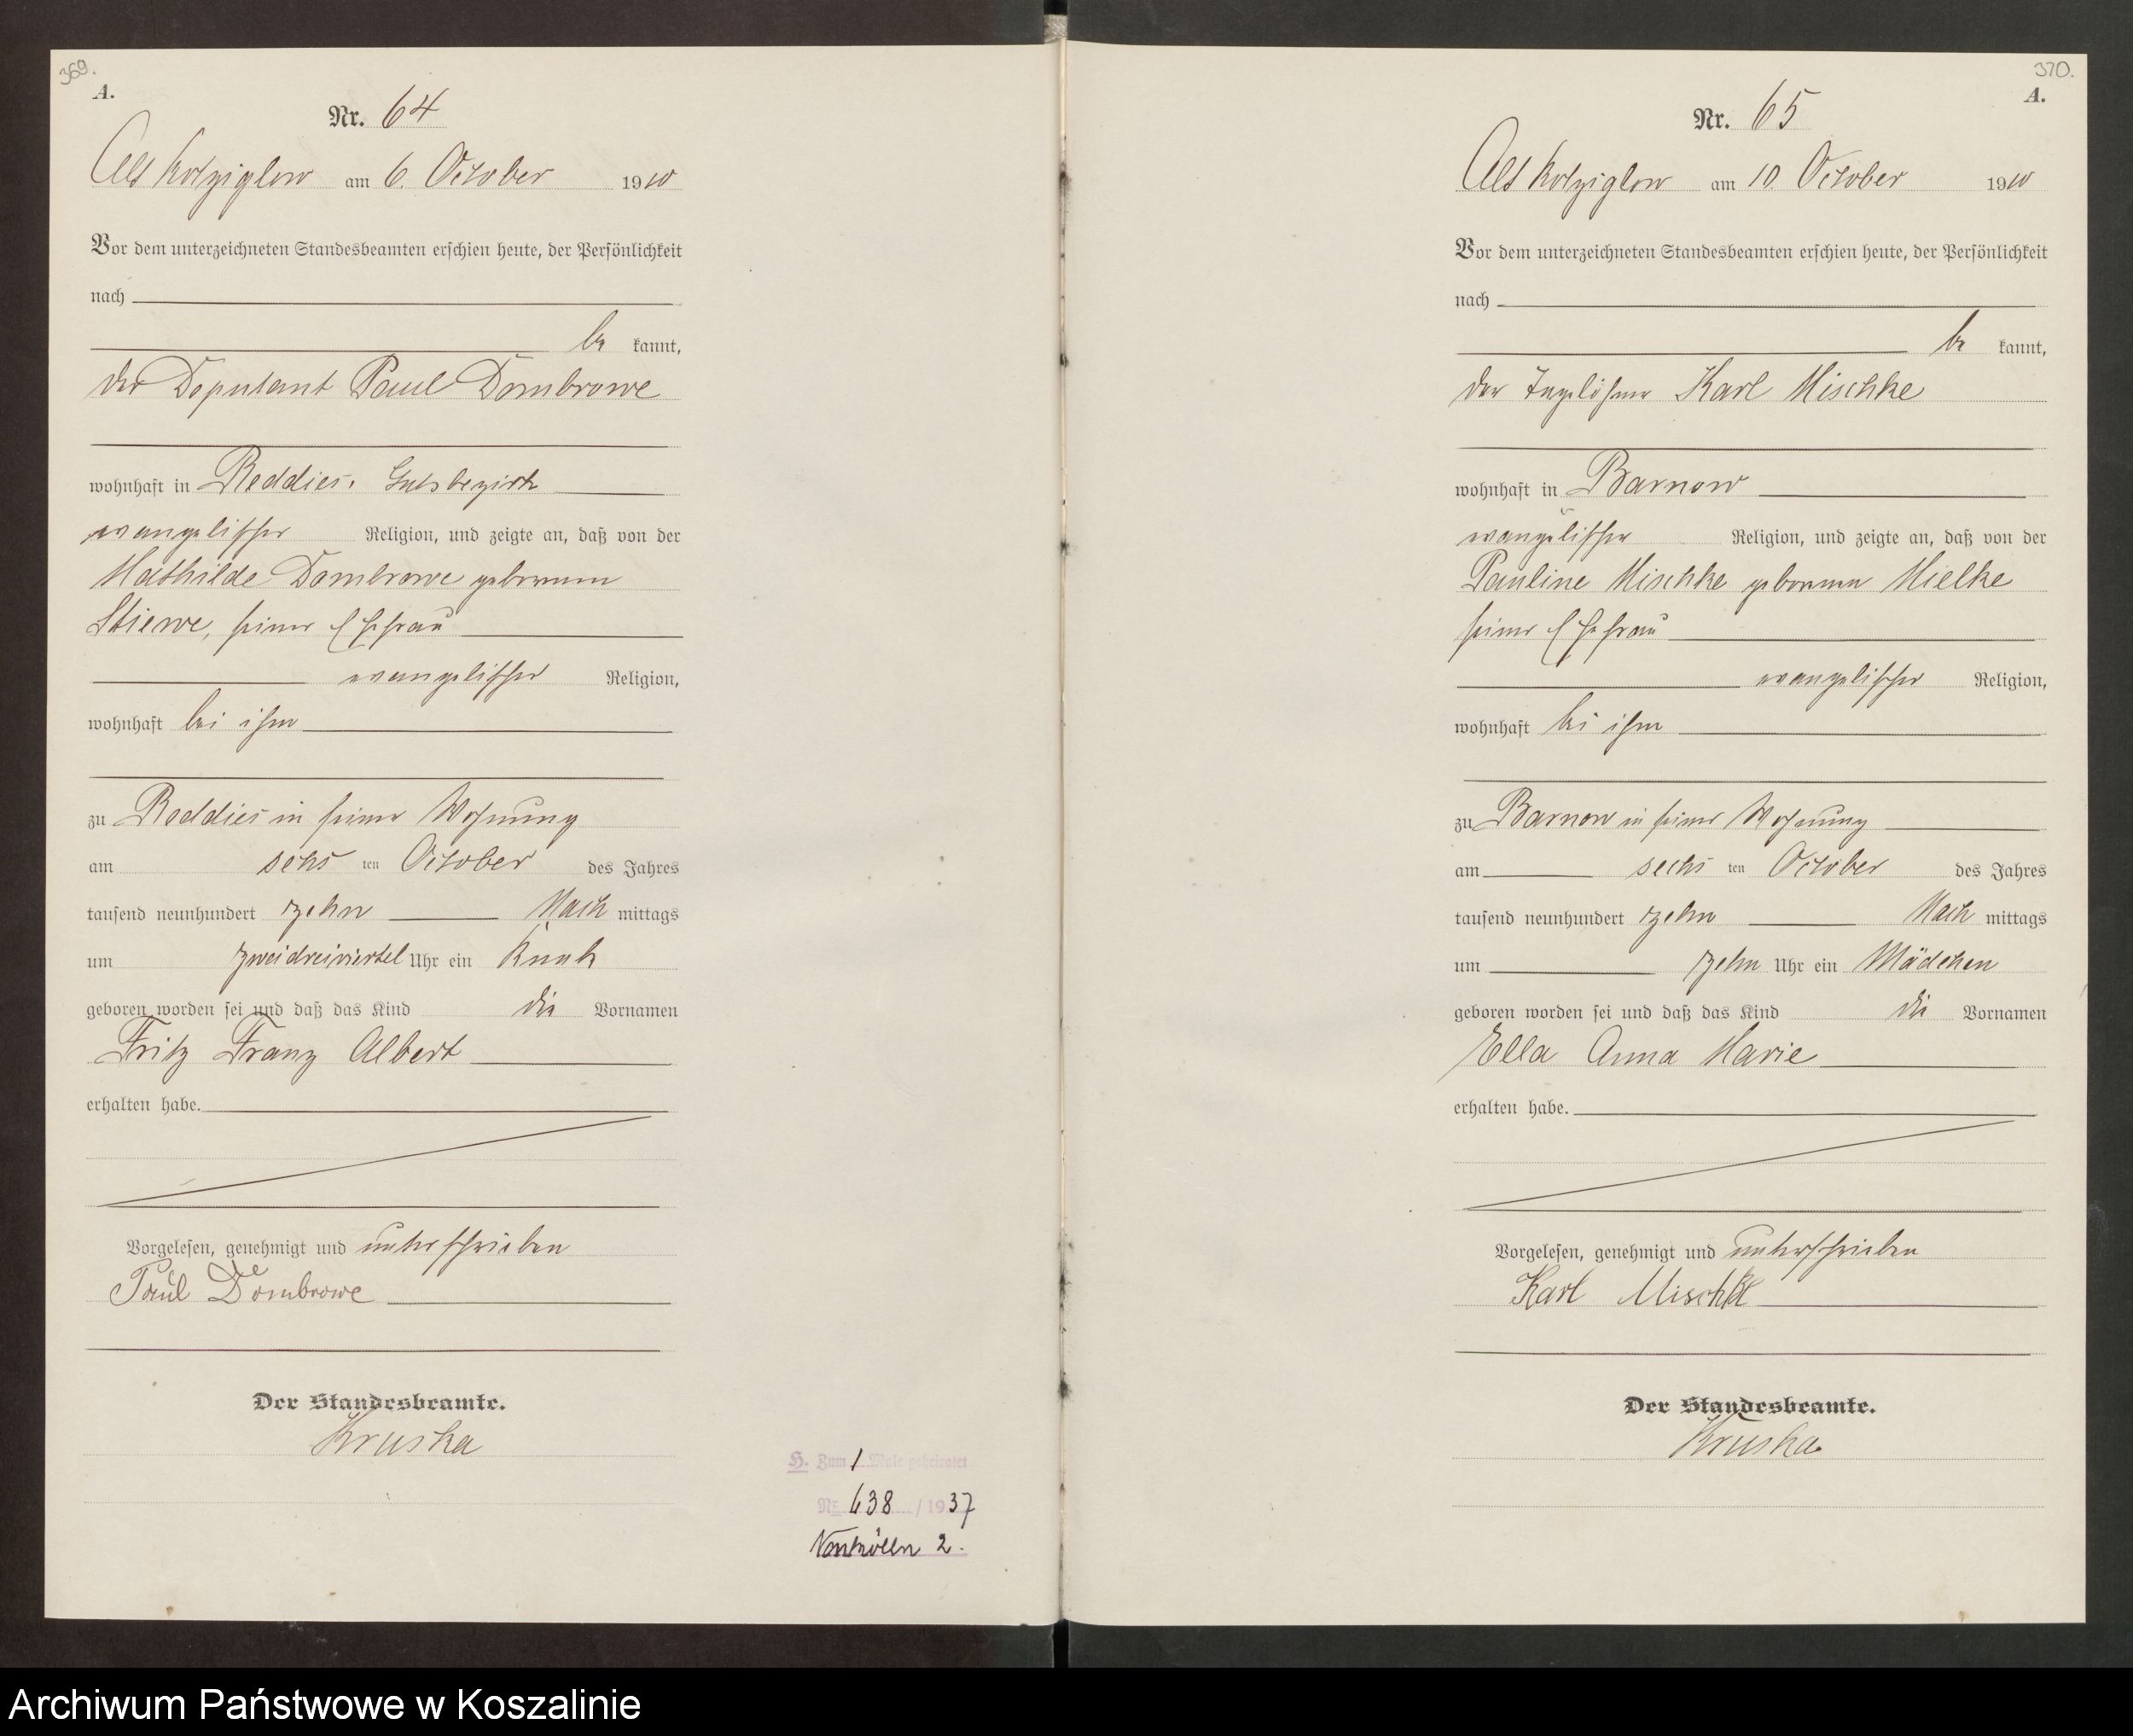 369.
A.
Nr. 64
Alt Kolziglow am 6. October 1910
Vor dem unterzeichneten Standesbeamten erschien heute, der Persönlichkeit
nach
be kannt,
der Deputant Paul Dombrowe
wohnhaft in Reddies, Gutsbezirk
evangelischer Religion, und zeigte an, daß von der
Mathilde Dombrowe geborenen
Stiewe, seiner Ehefrau
evangelischer Religion,
wohnhaft bei ihm
zu Reddies in seiner Wohnung
am sechs ten October des Jahres
tausend neunhundert zehn Nach mittags
um zweidreiviertel Uhr ein Knabe
geboren worden sei und daß das Kind die Vornamen
Fritz Franz Albert
erhalten habe.
Vorgelesen, genehmigt und unterschrieben
Paul Dombrowe
Der Standesbeamte.
Kruska
H. Zum 1 Male geheiratet
Nr. 638 / 1937
Neukölln 2.
370.
A.
Nr. 65
Alt Kolziglow am 10. October 1910
Vor dem unterzeichneten Standesbeamten erschien heute, der Persönlichkeit
nach
be kannt,
der Tagelöhner Karl Mischke
wohnhaft in Barnow
evangelischer Religion, und zeigte an, daß von der
Pauline Mischke geborenen Mielke
seiner Ehefrau
evangelischer Religion,
wohnhaft bei ihm
zu Barnow in seiner Wohnung
am sechs ten October des Jahres
tausend neunhundert zehn Nach mittags
um zehn Uhr ein Mädchen
geboren worden sei und daß das Kind die Vornamen
Ella Anna Marie
erhalten habe.
Vorgelesen, genehmigt und unterschrieben
Karl Mischke
Der Standesbeamte.
Kruska.
Archiwum Państwowe w Koszalinie